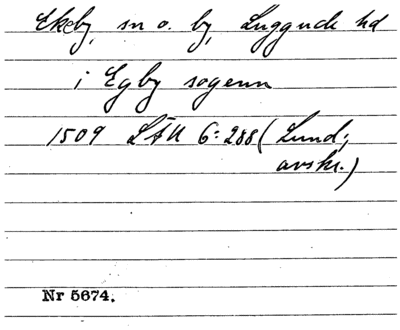 Ekeby, sn o. by, Luggude hd
i Egby sogenn
1509 LÄU 6:288 (Lund;
avskr.)
Nr 5674.